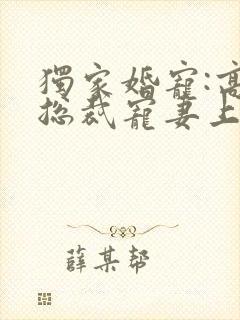 獨家婚寵:高
總裁寵妻上
薛某幫